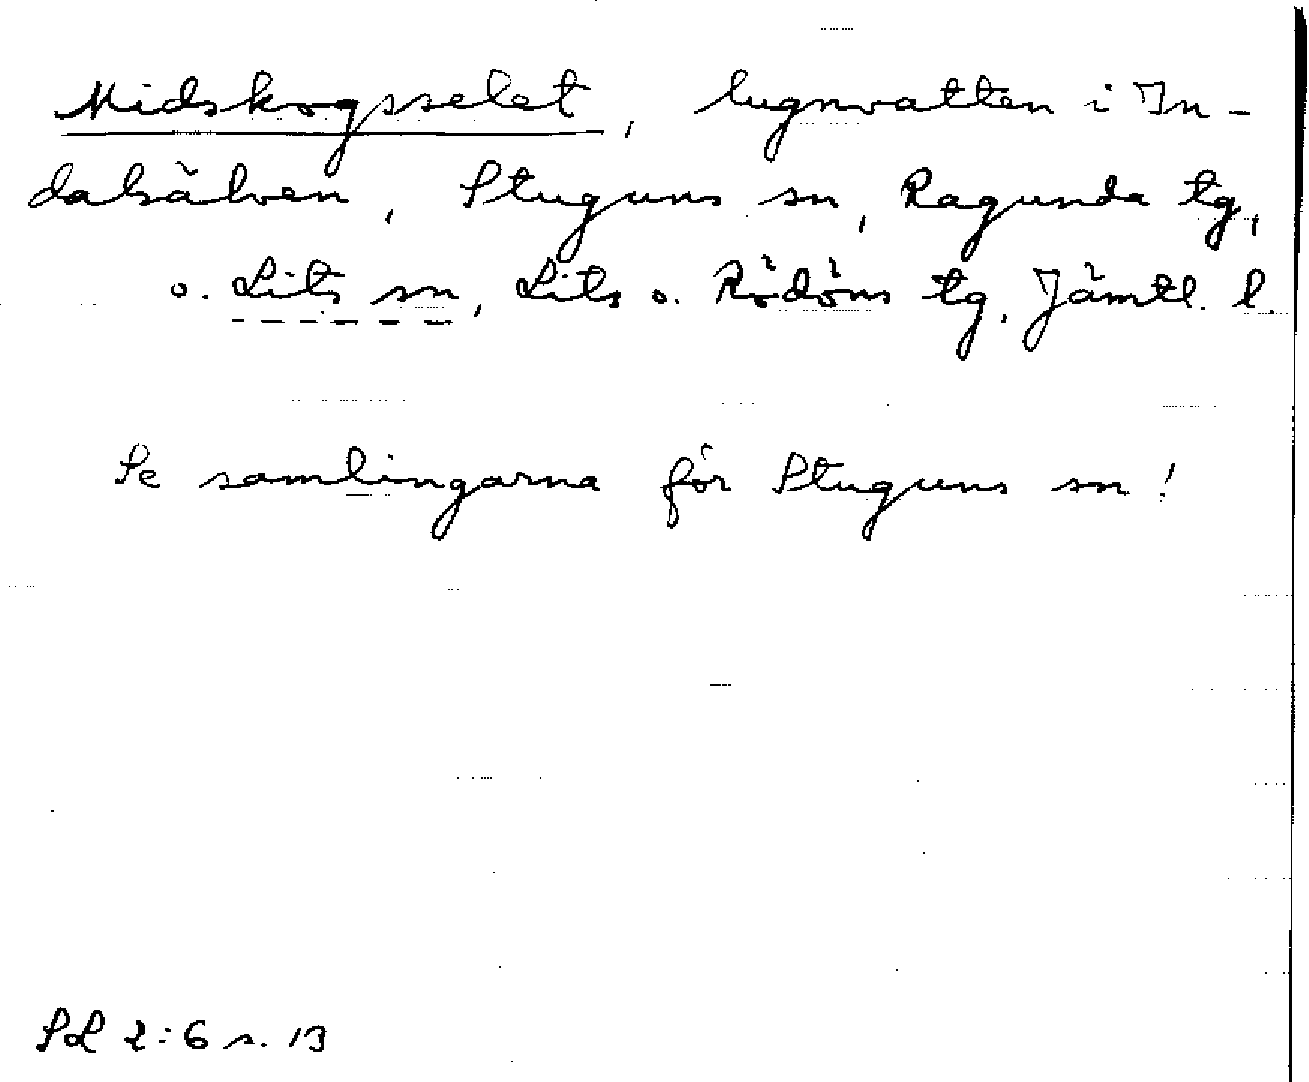 Midskogsselet, lugnvatten i In-
dalsälven, Stuguns sn, Ragunda tg,
o. Lits sn, Lits o. Rödöns tg, Jämtl. l.
Se samlingarna för Stuguns sn!
SOL 2:6 s. 13